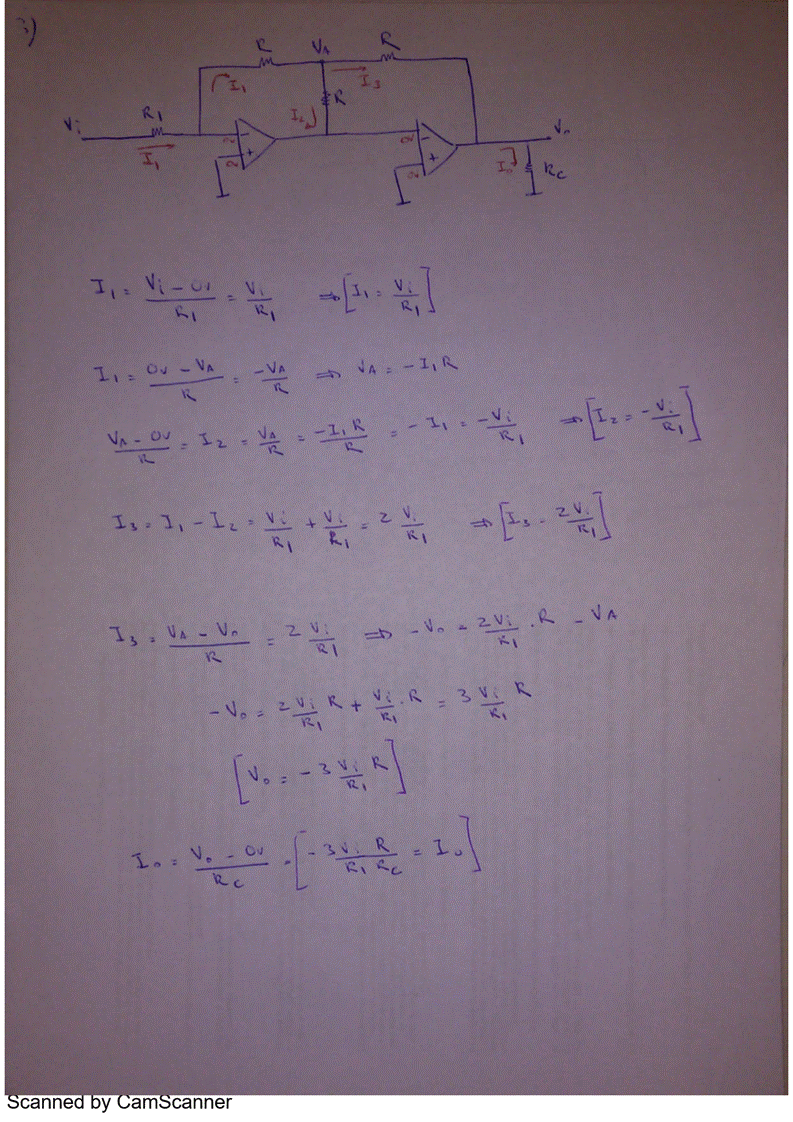 3)
R VA R
I1 I3
R1 R
Vi I2 Vo
I1 Io RC
I1 = (Vi - 0v)/R1 = Vi/R1 ⇒ [I1 = Vi/R1]
I1 = (0v - VA)/R = -VA/R ⇒ VA = -I1R
(VA - 0v)/R = I2 = VA/R = -I1R/R = -I1 = -Vi/R1 ⇒ [I2 = -Vi/R1]
I3 = I1 - I2 = Vi/R1 + Vi/R1 = 2 Vi/R1 ⇒ [I3 = 2Vi/R1]
I3 = (VA - Vo)/R = 2 Vi/R1 ⇒ -Vo = 2Vi/R1 . R - VA
-Vo = 2 Vi/R1 R + Vi/R1 . R = 3 Vi/R1 R
[Vo = -3 Vi/R1 R]
Io = (Vo - 0v)/RC = [-3 Vi R/(R1 RC) = Io]
Scanned by CamScanner